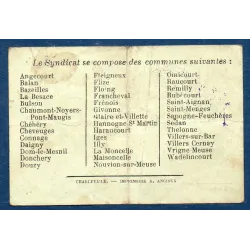 Le Syndicat se compose des communes suivantes :
Angecourt
Balan
Bazeilles
La Besace
Bulson
Chaumont-Noyers-
Pont-Maugis
Chéhéry
Cheveuges
Connage
Daigny
Dom-le-Mesnil
Donchery
Douzy
Fleigneux
Flize
Floing
Francheval
Frénois
Givonne
Glaire-et-Villette
Hannogne-St Martin
Haraucourt
Iges
Illy
La Moncelle
Maisoncelle
Nouvion-sur-Meuse
Omicourt
Raucourt
Remilly
Rubécourt
Saint-Aignan
Saint-Menges
Sapogne-Feuchères
Sedan
Thelonne
Villers-sur-Bar
Villers Cernay
Vrigne-Meuse
Wadelincourt
CHARLEVILLE. — IMPRIMERIE A. ANCIAUX